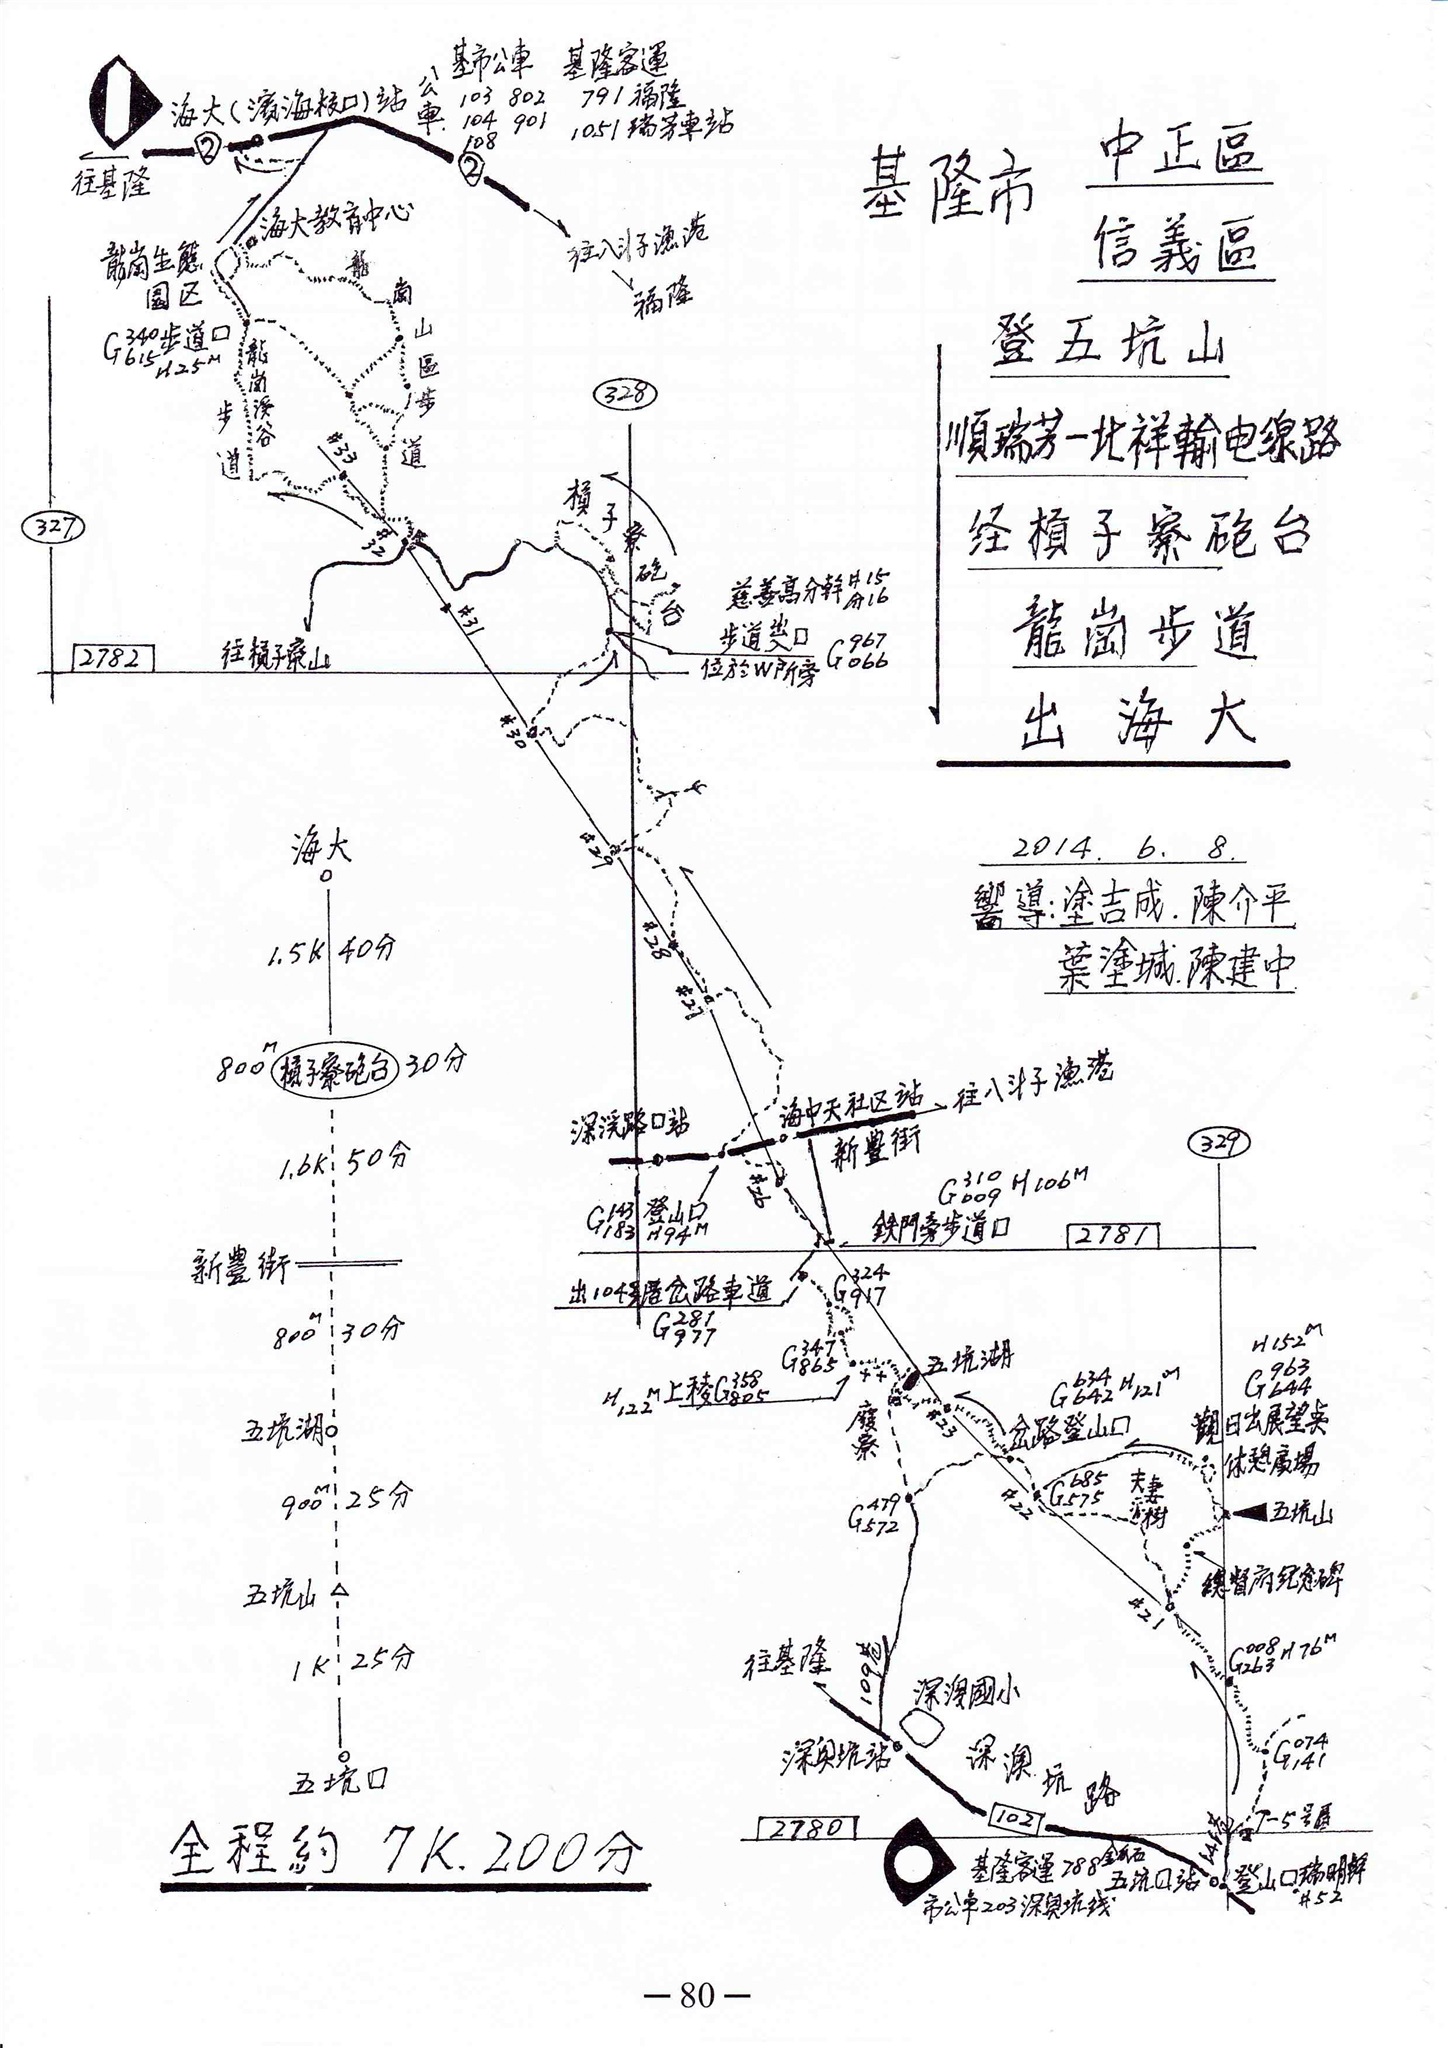 基市公車 基隆客運
公車
103 802 791 福隆
104 901 1051 瑞芳車站
108
海大(濱海校口)站
2
2
往基隆
往八斗子漁港
福隆
海大教育中心
龍崗生態
園区
G340 615 步道口
H25M
龍崗山區步道
龍崗溪谷
步道
#33
#32
#31
#30
#29
#28
#27
#26
#23
#22
#21
327
328
329
2782
2781
2780
往槓子寮山
槓子寮砲台
慈善高分幹#15
分16
步道岔口 G967 066
位於W戶所旁
基隆市 中正區
信義區
登五坑山
順瑞芳一北祥輸电線路
経槓子寮砲台
龍崗步道
出海大
2014. 6. 8.
嚮導:塗吉成.陳介平
葉塗城.陳建中
海大
1.5K 40分
800M 槓子寮砲台 30分
1.6K 50分
新豊街
800M 30分
五坑湖
900M 25分
五坑山
1K 25分
五坑口
全程約 7K.200分
深溪路口站
海中天社区站
往八斗子漁港
新豊街
G143 183 登山口
H94M
G310 009 H106M
鉄門旁步道口
出104号厝岔路車道
G281 977
G324 917
G347 865
H122M上稜G358 805
五坑湖
廢寮
G634 642 H121M
岔路登山口
H152M
G963 644
觀日出展望点
休憩廣場
G685 575
夫妻樹
五坑山
G479 572
總督府紀念碑
G008 263 H76M
G074 141
往基隆
109巷
深澳國小
深奥坑站
深澳坑路
102
T-5号
基隆客運788金瓜石
市公車203深奥坑线
五坑口站
登山口瑞明幹
#52
— 80 —